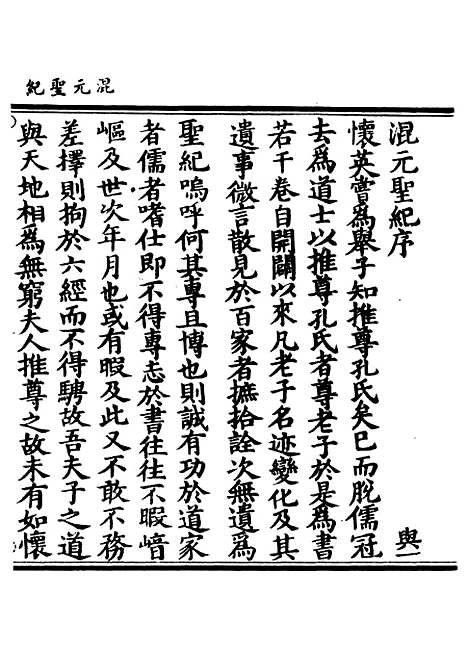 混元聖紀
混元聖紀序　與一
懷英嘗為舉子知推尊孔氏矣已而脫儒冠
去為道士以推尊孔氏者尊老子於是為書
若干卷自開闢以來凡老子名迹變化及其
遺事微言散見於百家者摭拾詮次無遺為
聖紀嗚呼何其專且博也則誠有功於道家
者儒者嗜仕即不得專志於書往往不暇崎
嶇及世次年月也或有暇及此又不敢不務
差擇則拘於六經而不得騁故吾夫子之道
與天地相為無窮夫人推尊之故未有如懷